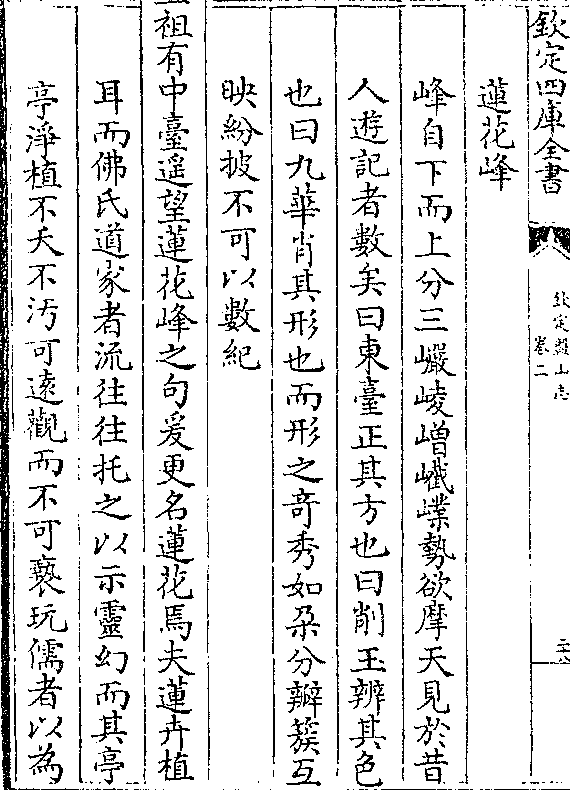 欽定四庫全書
欽定盤山志
卷二
蓮花峰
峰自下而上分三巖崚嶒巀嶫勢欲摩天見於昔
人遊記者數矣曰東臺正其方也曰削玉辨其色
也曰九華肖其形也而形之奇秀如朶分瓣簇互
映紛披不可以數紀
祖有中臺遥望蓮花峰之句爰更名蓮花焉夫蓮卉植
耳而佛氏道家者流往往托之以示靈幻而其亭
亭淨植不夭不汚可遠觀而不可褻玩儒者以為